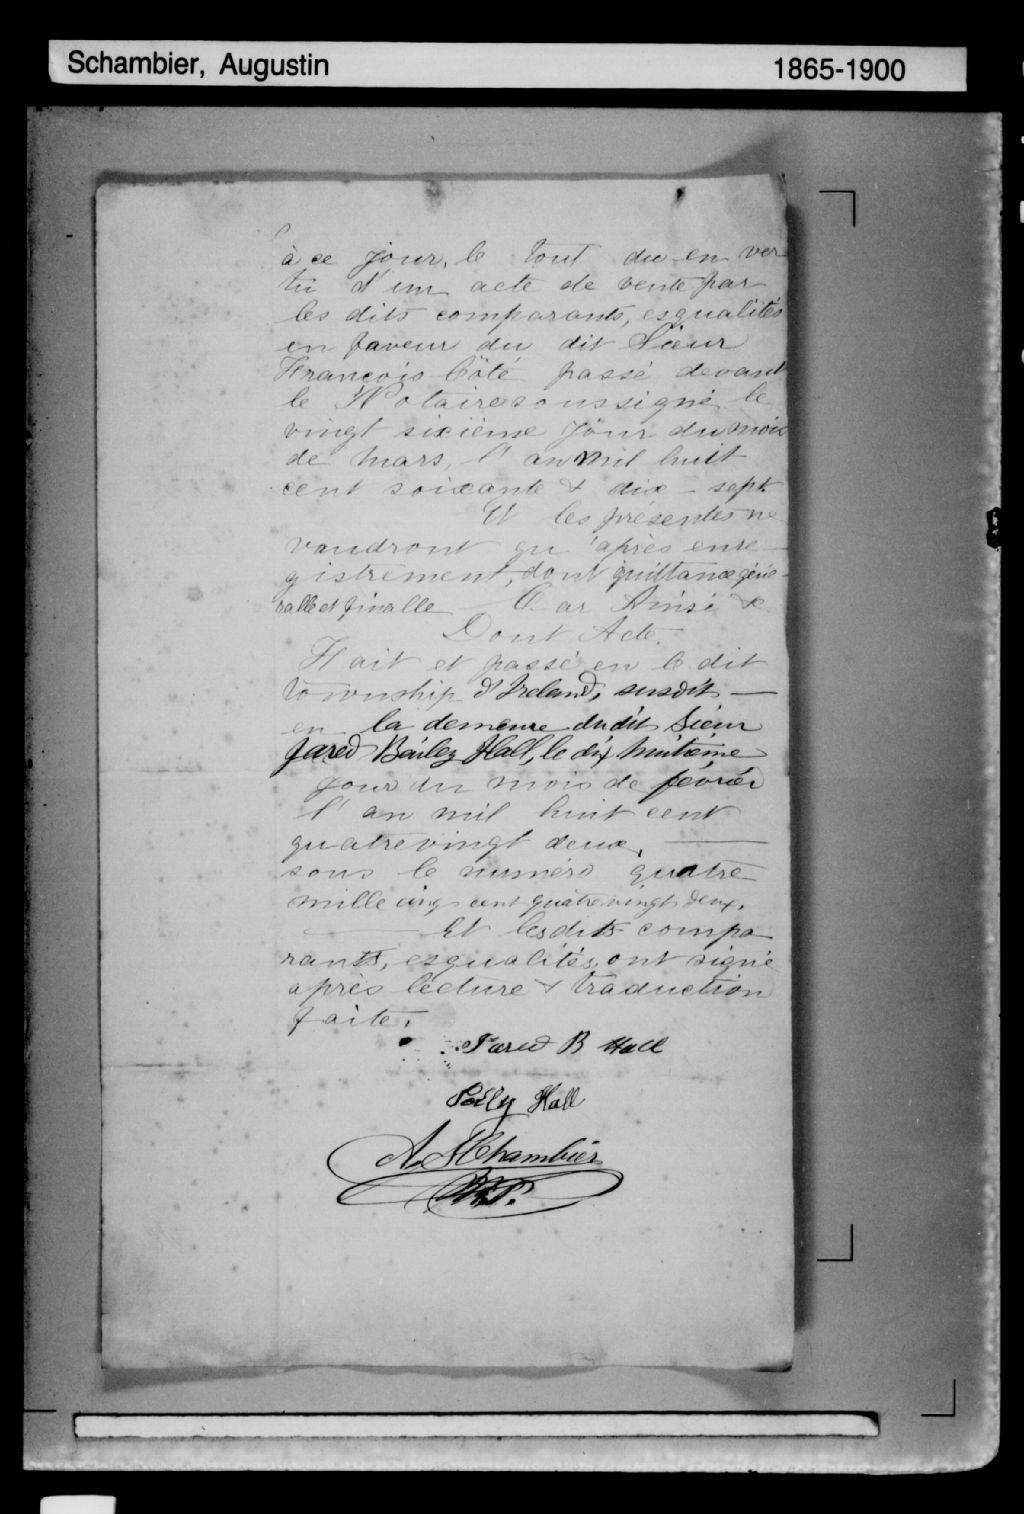 Schambier, Augustin 1865-1900
à ce jour, le tout du en ver
tu d'un acte de vente par
les dits comparants, esqualités
en faveur du dit Sieur
François Côté passé devant
le Notaire soussigné, le
vingt sixième jour du mois
de mars, l'an mil huit
cent soixante & dix-sept.
Et les présentes ne
vaudront qu'après enre
gistrement, dont quittance géné-
ralle et finalle Car Ainsi &
Dont Acte.
Fait et passé en le dit
township d'Ireland, susdit —
en la demeure dudit Sieur
Jared Bailey Hall, le dix huitième
jour du mois de février
l'an mil huit cent
quatrevingt deux, —
sous le numéro quatre
mille cinq cent quatrevingt deux.
— Et lesdits compa
rants, esqualités, ont signé
après lecture & traduction
faite.
Jared B Hall
Hall
A. SChambier
N.P.